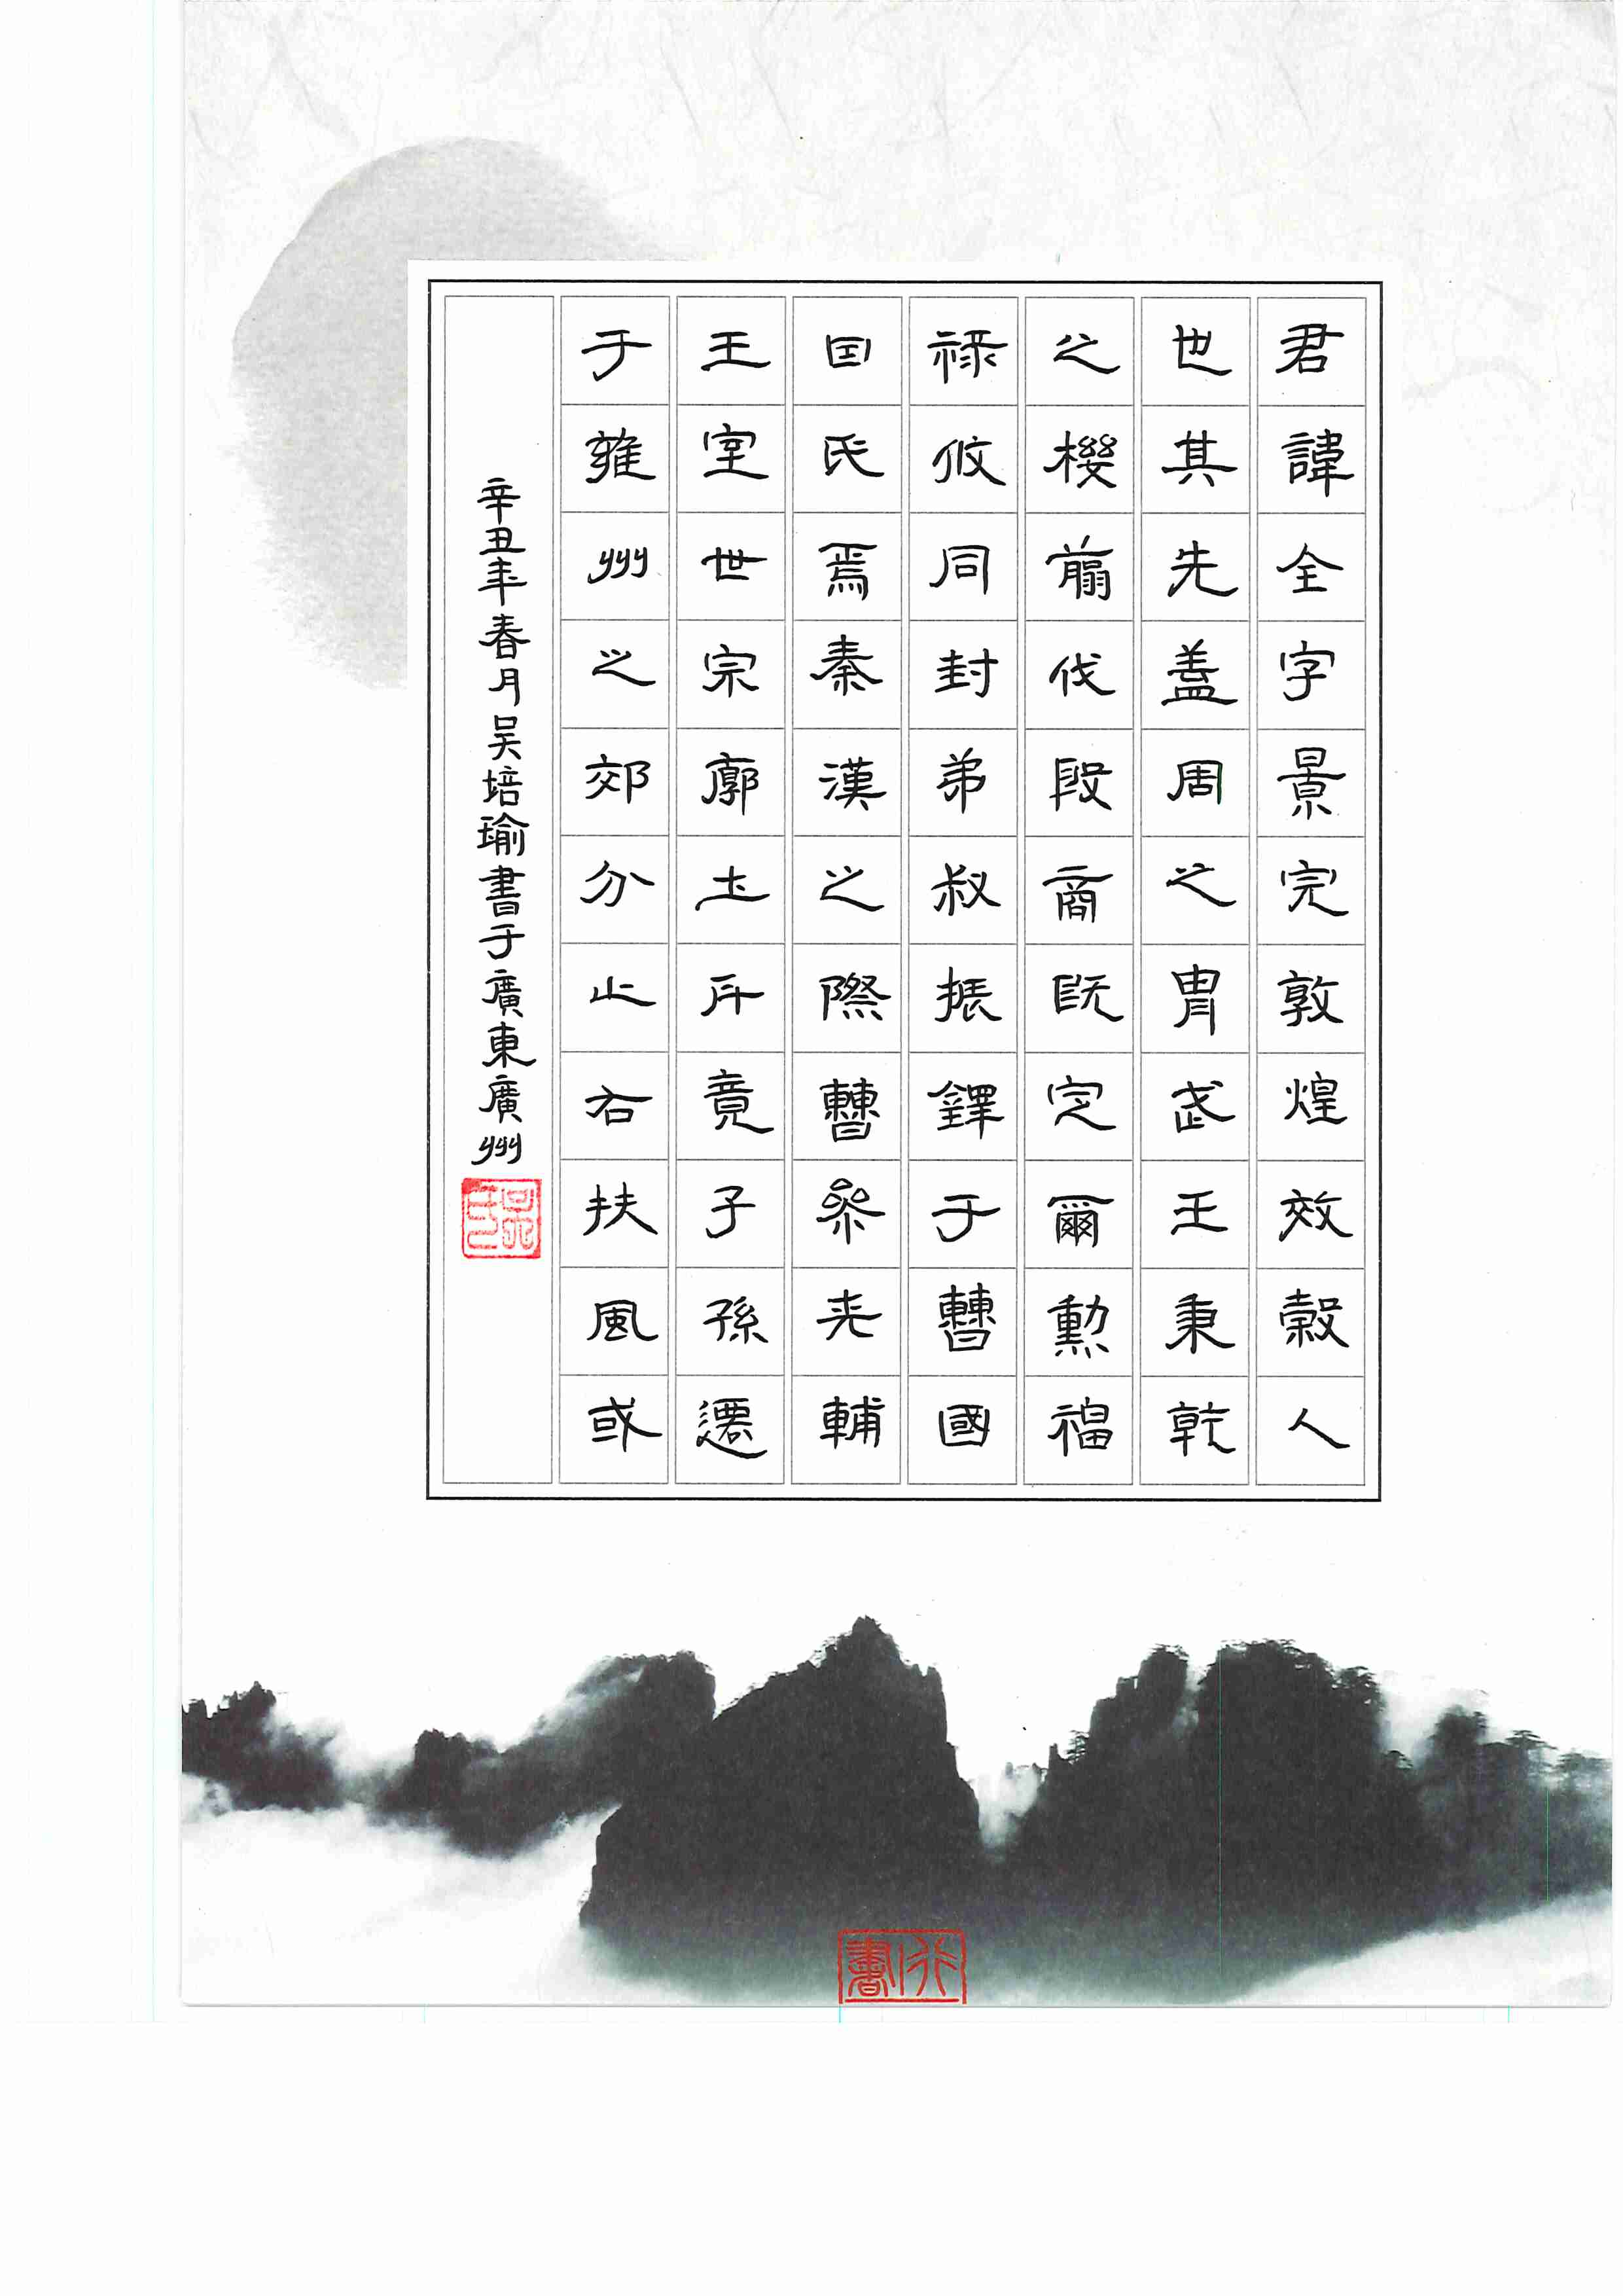 君諱全字景完敦煌效穀人
也其先蓋周之胄武王秉乾
之機翦伐殷商既定爾勳福
祿攸同封弟叔振鐸于曹國
因氏焉秦漢之際曹參夾輔
王室世宗廓土斥竟子孫遷
于雍州之郊分止右扶風或
辛丑年春月吳培瑜書于廣東廣州
吳印
行書